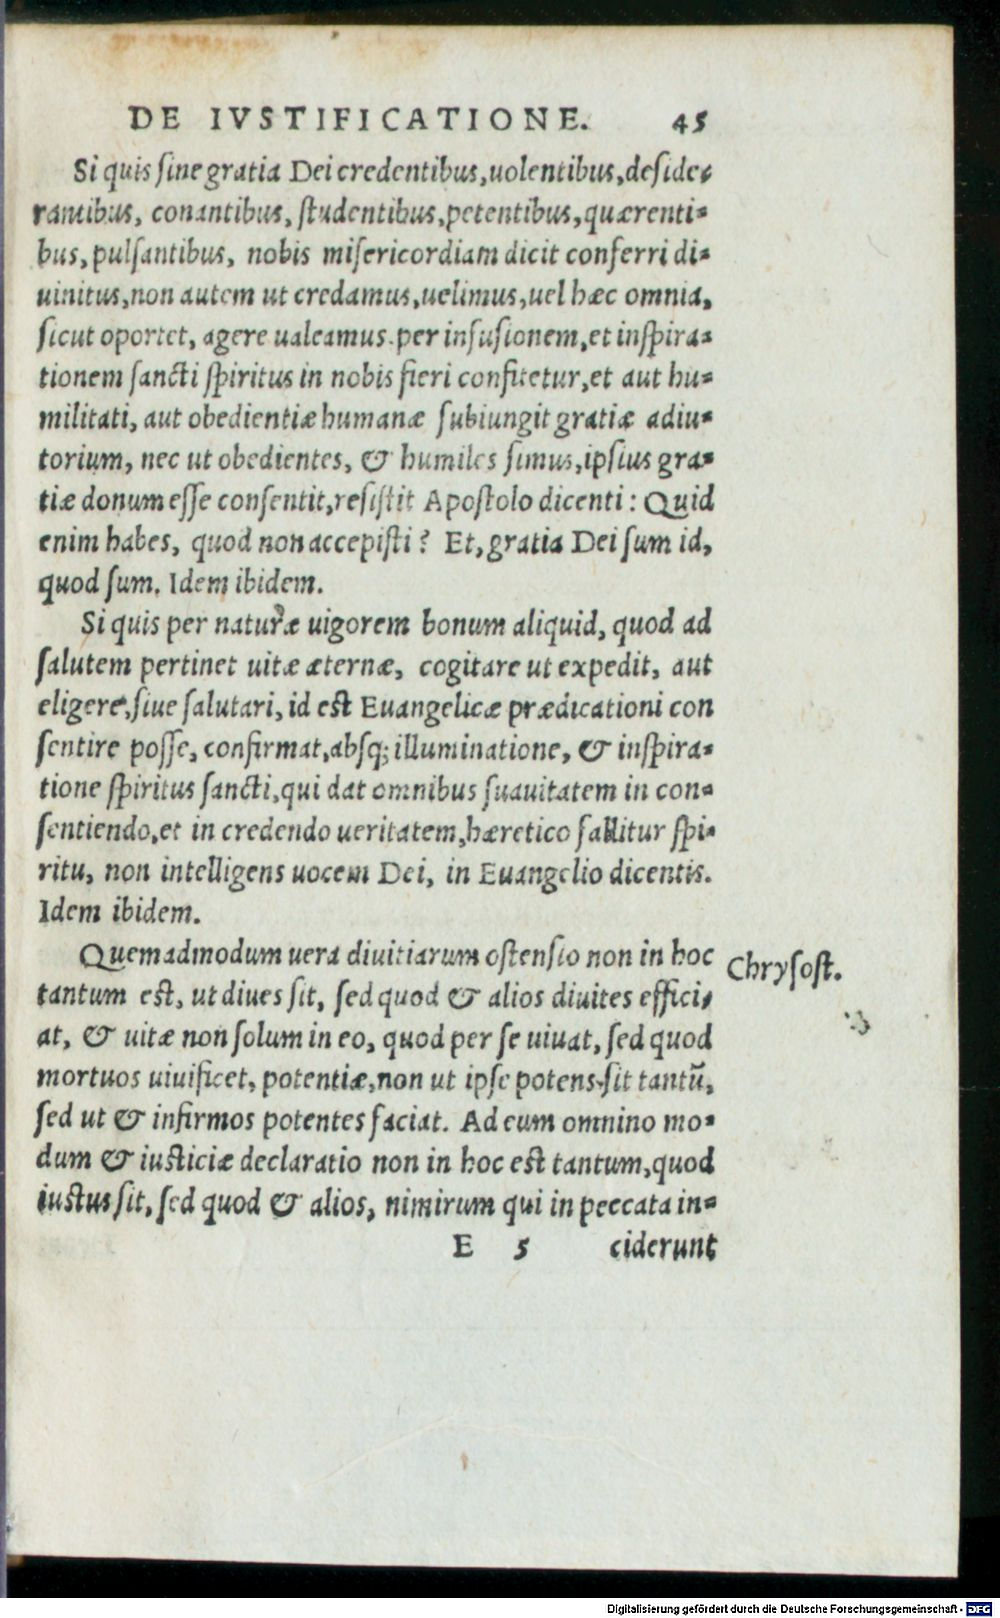 DE IVSTIFICATIONE. 45
Si quis sine gratia Dei credentibus, uolentibus, deside-
rantibus, conantibus, studentibus, petentibus, quærenti-
bus, pulsantibus, nobis misericordiam dicit conferri di-
uinitus, non autem ut credamus, uelimus, uel hæc omnia,
sicut oportet, agere ualeamus. per infusionem, et inspira-
tionem sancti spiritus in nobis fieri confitetur, et aut hu-
militati, aut obedientiæ humanæ subiungit gratiæ adiu-
torium, nec ut obedientes, & humiles simus, ipsius gra-
tiæ donum esse consentit, resistit Apostolo dicenti: Quid
enim habes, quod non accepisti? Et, gratia Dei sum id,
quod sum. Idem ibidem.
Si quis per naturæ uigorem bonum aliquid, quod ad
salutem pertinet uitæ æternæ, cogitare ut expedit, aut
eligere, siue salutari, id est Euangelicæ prædicationi con
sentire posse, confirmat, absq; illuminatione, & inspira-
tione spiritus sancti, qui dat omnibus suauitatem in con-
sentiendo, et in credendo ueritatem, hæretico fallitur spi-
ritu, non intelligens uocem Dei, in Euangelio dicentis.
Idem ibidem.
Quemadmodum uera diuitiarum ostensio non in hoc
Chrysost.
tantum est, ut diues sit, sed quod & alios diuites effici-
at, & uitæ non solum in eo, quod per se uiuat, sed quod
mortuos uiuificet, potentiæ, non ut ipse potens sit tantū,
sed ut & infirmos potentes faciat. Ad eum omnino mo-
dum & iusticiæ declaratio non in hoc est tantum, quod
iustus sit, sed quod & alios, nimirum qui in peccata in-
E 5 ciderunt
Digitalisierung gefördert durch die Deutsche Forschungsgemeinschaft - DFG